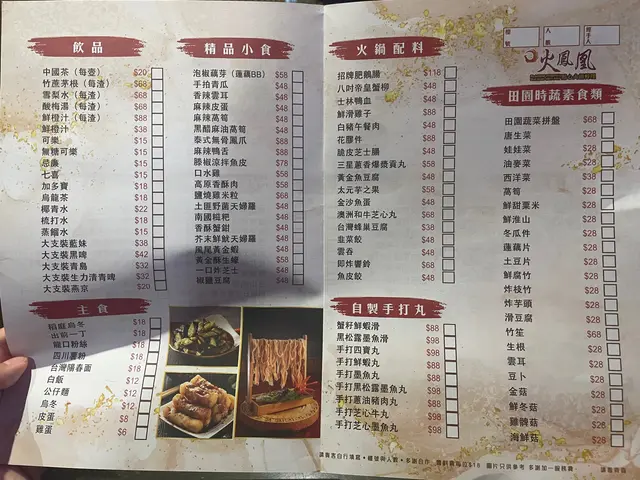 飲品
中國茶（每壺） $20
竹蔗茅根（每渣） $68
雪梨水（每渣） $68
酸梅湯（每渣） $68
鮮橙汁（每渣） $88
鮮橙汁 $38
可樂 $15
無糖可樂 $15
忌廉 $15
七喜 $15
加多寶 $18
烏龍茶 $18
椰青水 $22
梳打水 $18
蒸餾水 $15
大支裝藍妹 $38
大支裝黑啤 $42
大支裝青島 $32
大支裝生力清青啤 $32
大支裝燕京 $20
主食
稻庭烏冬 $18
出前一丁 $18
龍口粉絲 $18
四川薯粉 $18
台灣陽春面 $18
白飯 $12
公仔麵 $12
烏冬 $12
皮蛋 $8
雞蛋 $6
精品小食
泡椒藕芽（蓮藕BB） $58
手拍青瓜 $48
香辣雲耳 $48
麻辣皮蛋 $48
麻辣萵筍 $48
黑醋麻油萵筍 $48
泰式無骨鳳爪 $88
麻辣鴨舌 $88
滕椒涼拌魚皮 $78
口水雞 $58
高原香酥肉 $58
鹽燒雞米粒 $68
土匪野菌天婦羅 $48
南國糍粑 $48
香酥蟹鉗 $48
芥末鮮魷天婦羅 $48
鳳尾黃金蝦 $48
黃金酥生蠔 $58
一口炸芝士 $48
椒鹽豆腐 $48
火鍋配料
招牌肥鵝腸 $118
八吋帝皇蟹柳 $48
士林鴨血 $48
鮮滑雞子 $88
白豬午餐肉 $48
花膠件 $88
脆皮芝士腸 $48
三星蔥香爆漿貢丸 $38
黃金魚豆腐 $48
太元芋之果 $58
金沙魚蛋 $48
澳洲和牛芝心丸 $68
台灣蜂巢豆腐 $38
韭菜餃 $48
雲吞 $48
即炸響鈴 $68
魚皮餃 $48
自製手打丸
蟹籽鮮蝦滑 $88
黑松露墨魚滑 $98
手打四寶丸 $98
手打鮮蝦丸 $88
手打墨魚丸 $88
手打黑松露墨魚丸 $98
手打蔥油豬肉丸 $88
手打芝心牛丸 $98
手打芝心墨魚丸 $98
火鳳凰
田園時蔬素食類
田園蔬菜拼盤 $68
唐生菜 $28
娃娃菜 $28
油麥菜 $28
西洋菜 $38
萵筍 $28
鮮甜粟米 $28
鮮淮山 $28
冬瓜件 $28
蓮藕片 $28
土豆片 $28
鮮腐竹 $28
炸枝竹 $28
炸芋頭 $28
滑豆腐 $28
竹笙 $68
生根 $28
雲耳 $28
豆卜 $28
金菇 $28
鮮冬菇 $28
雞髀菇 $28
海鮮菇 $28